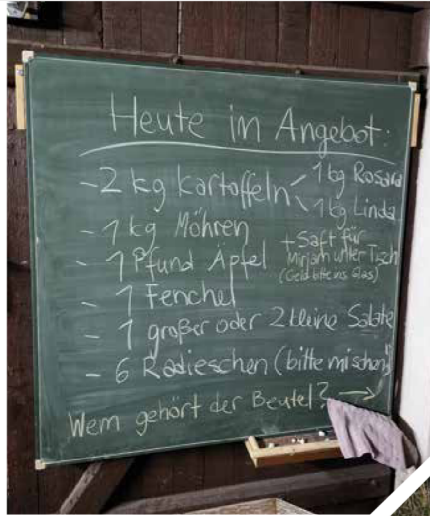 Heute im Angebot:
- 2 kg Kartoffeln 1 kg Rosara
1 kg Linda
- 1 kg Möhren
+ Saft für
- 1 Pfund Äpfel Mirjam unter Tisch
(Geld bitte ins Glas)
- 1 Fenchel
- 1 großer oder 2 kleine Salate
- 6 Radieschen (bitte mischen)
Wem gehört der Beutel? →